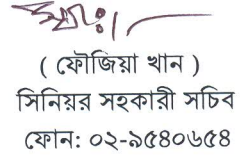 ( ফৌজিয়া খান )
সিনিয়র সহকারী সচিব
ফোন: ০২-৯৫৪০৬৫৪